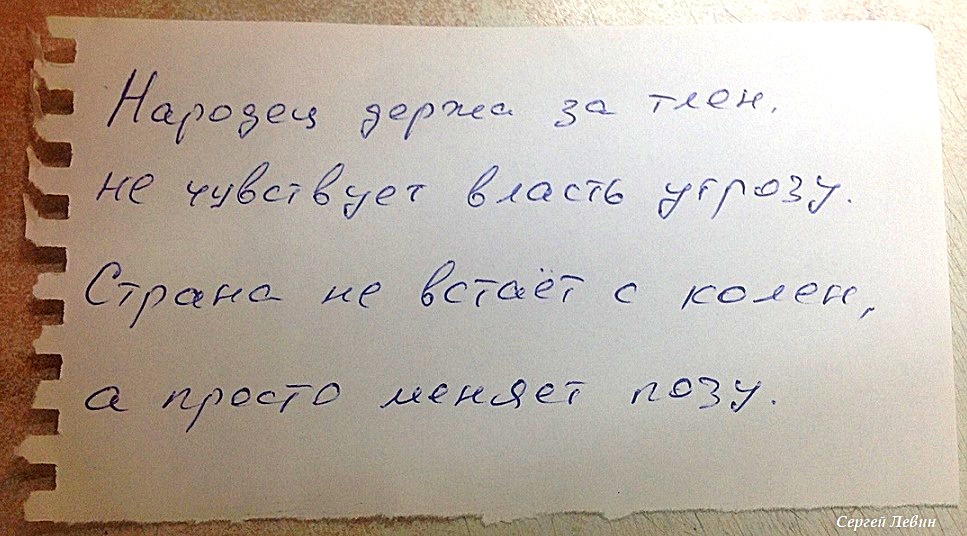 Народец держа за тлен,
не чувствует власть угрозу.
Страна не встаёт с колен,
а просто меняет позу.
Сергей Левин